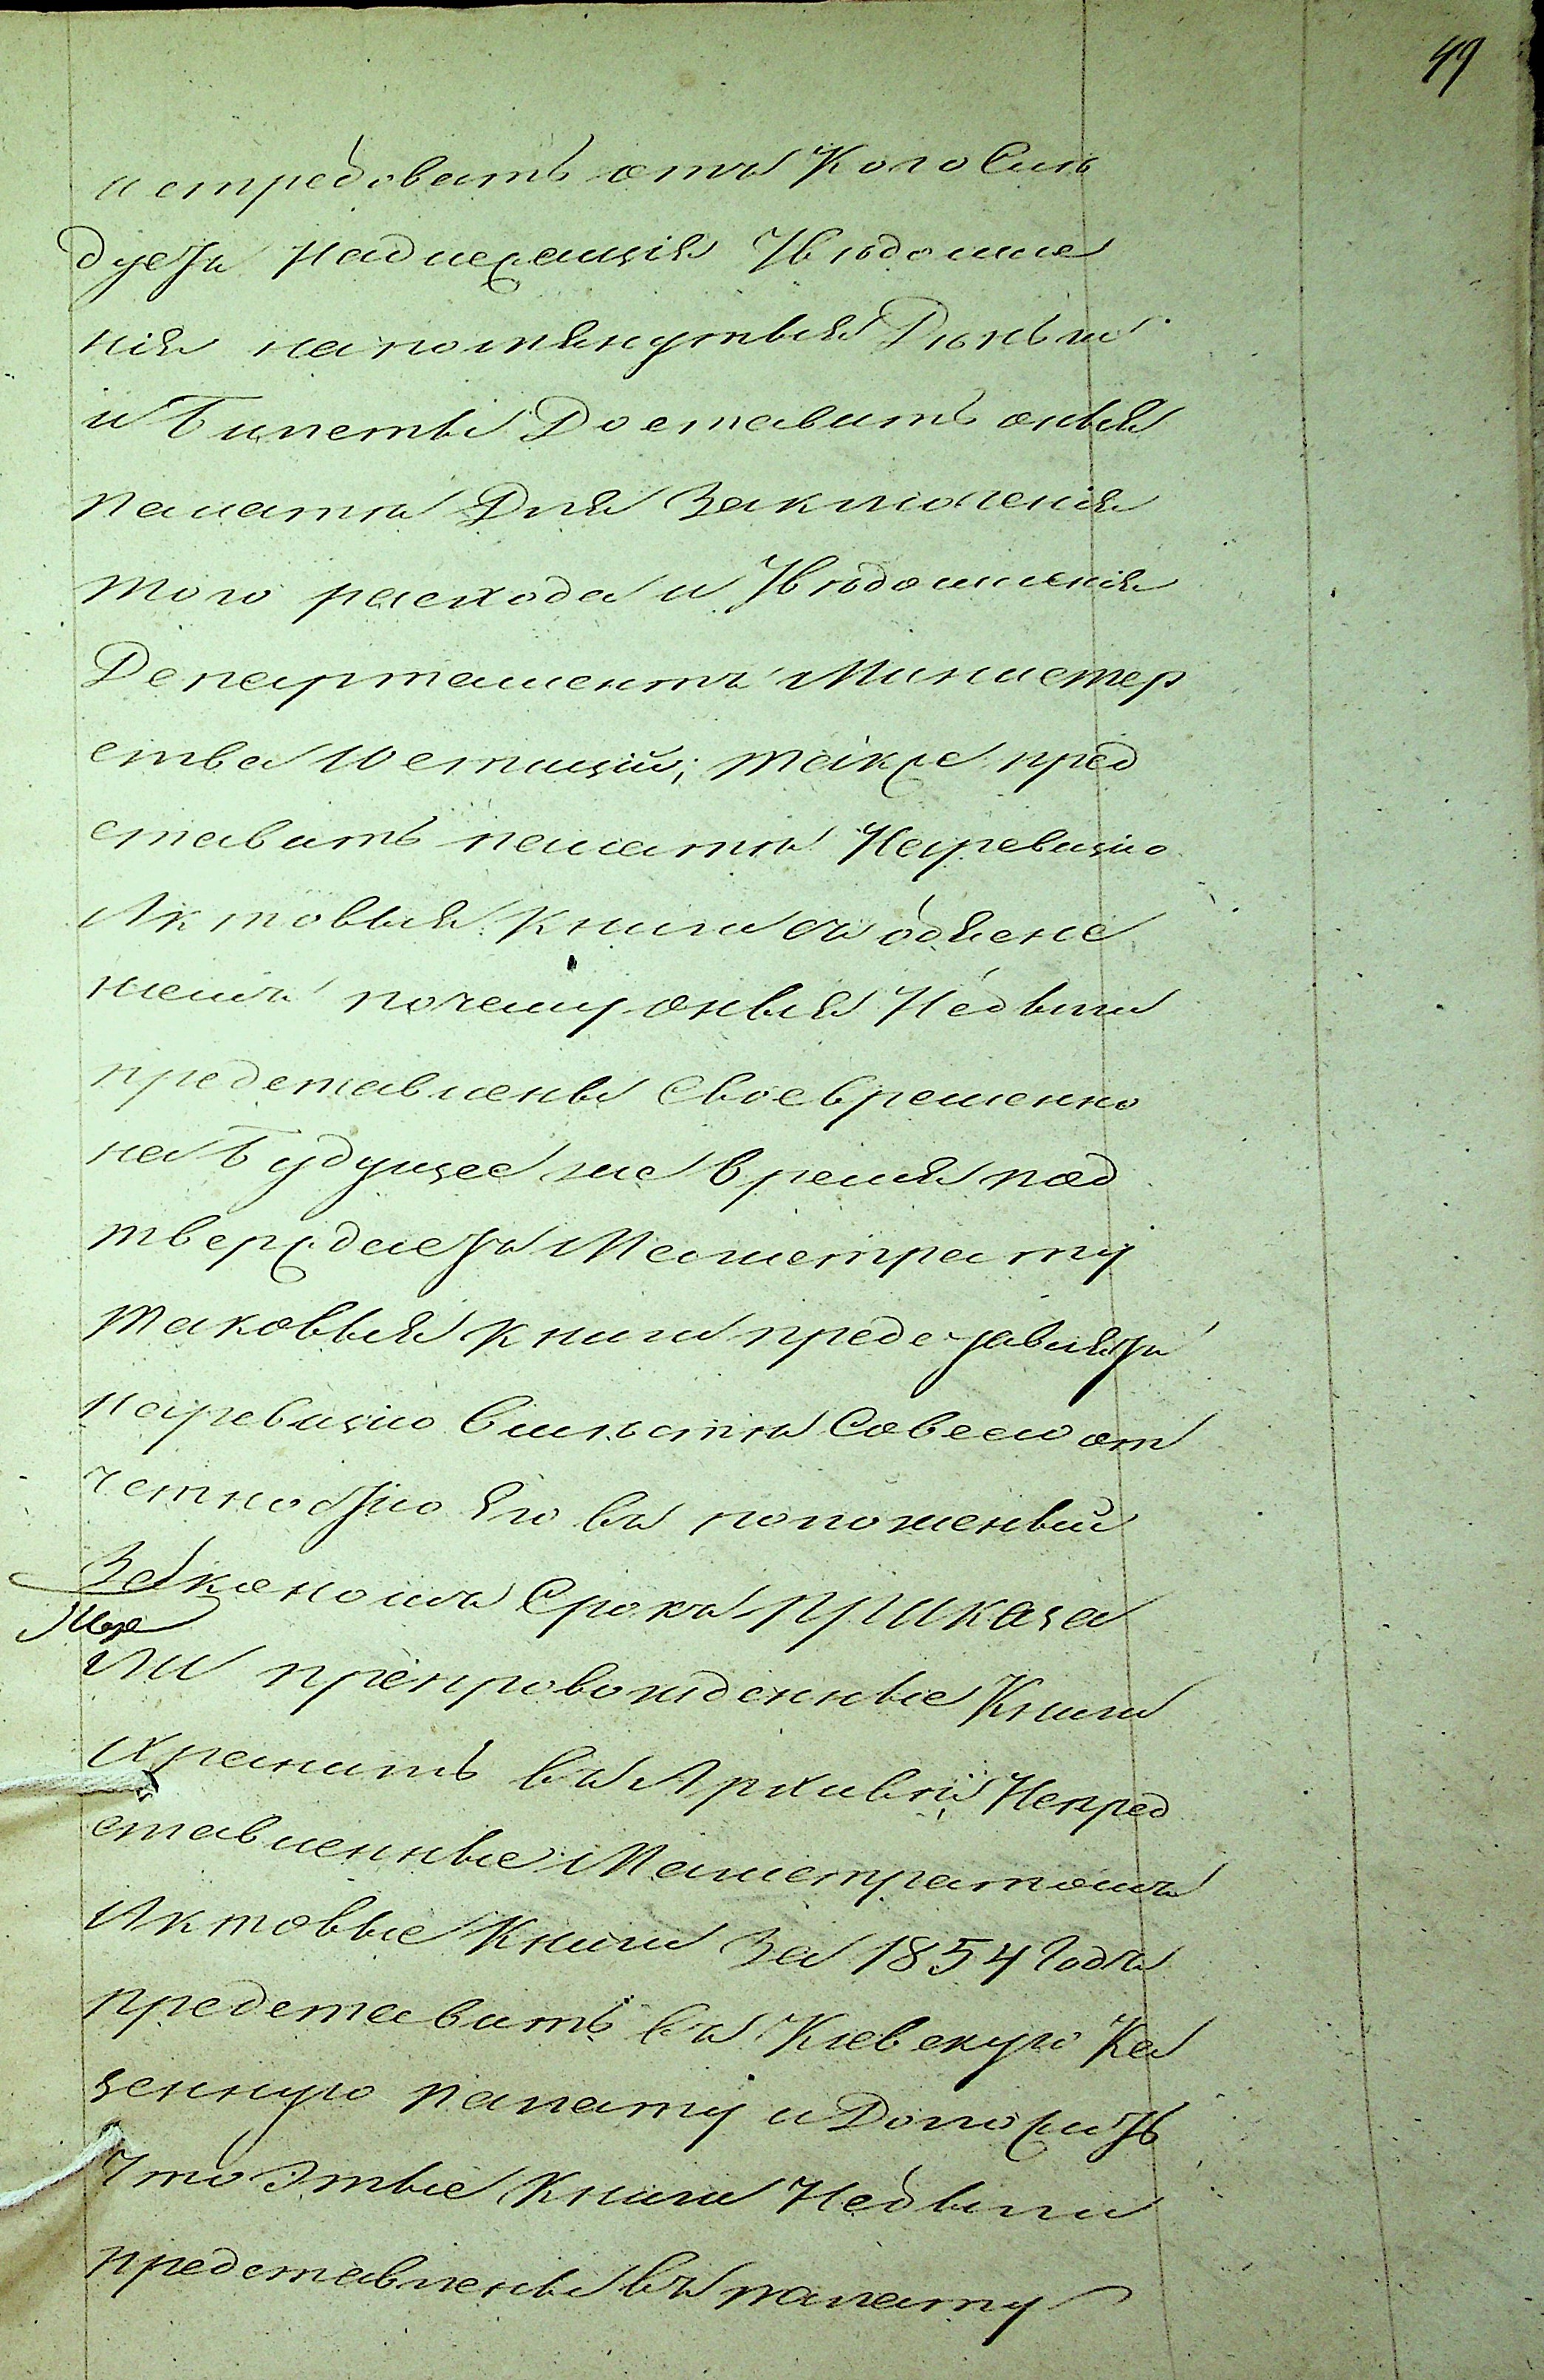 49
истребовать отъ Кого Слѣ
дуетъ Надлежащія Увѣдомле
нія напомянутыя Дѣньги
и Билеты Доставить оныя
палатѣ Для Заключенія
того расхода и Увѣдомленія
Департаментъ Министер
ства Юстиціи; также пред
ставить палатѣ Наревизію
Актовыя Книги съ обясне
ніемъ почему оныя Небыли
представлены Своевременно
на Будущее же время под
тверждаетъ Магистрату
таковыя Книги представлять
наревизію вмѣстѣ Совсею от
четностію Его въ положеный
Закономъ Срокъ Приказа
ли препровожденные Книги
хранить въ Архивѣ Непред
ставленные Магистратомъ
Актовые Книги За 1854 Годъ
представить въ Кіевскую Ка
зенную палату и Доложить
Что Этые Книги Небыли
представлены въ палату